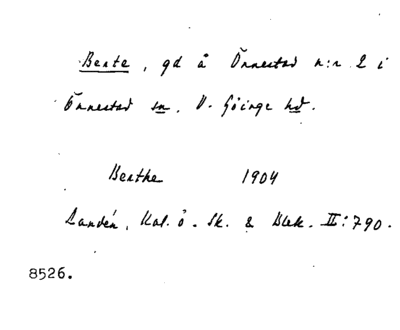 Bente, gd å Önnestad n:r 2 i
Önnestad sn, V. Göinge hd.
Benthe 1904
Landén, Kal. ö. Sk. & Blek. II:790.
8526.